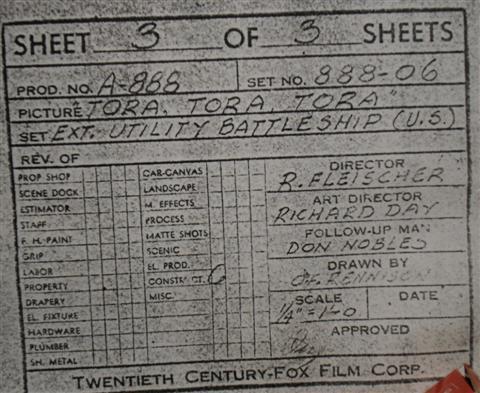 SHEET 3 OF 3 SHEETS
PROD. NO. A-888 SET NO. 888-06
PICTURE "TORA, TORA, TORA"
SET EXT. UTILITY BATTLESHIP (U.S.)
REV. OF
PROP SHOP
SCENE DOCK
ESTIMATOR
STAFF
F. H. PAINT
GRIP
LABOR
PROPERTY
DRAPERY
EL. FIXTURE
HARDWARE
PLUMBER
SH. METAL
CAR-CANVAS
LANDSCAPE
M. EFFECTS
PROCESS
MATTE SHOTS
SCENIC
EL. PROD.
CONSTRUCT. 6
MISC.
DIRECTOR
R. FLEISCHER
ART DIRECTOR
RICHARD DAY
FOLLOW-UP MAN
DON NOBLES
DRAWN BY
RENNISON
SCALE DATE
1/4"=1'-0
APPROVED
TWENTIETH CENTURY-FOX FILM CORP.